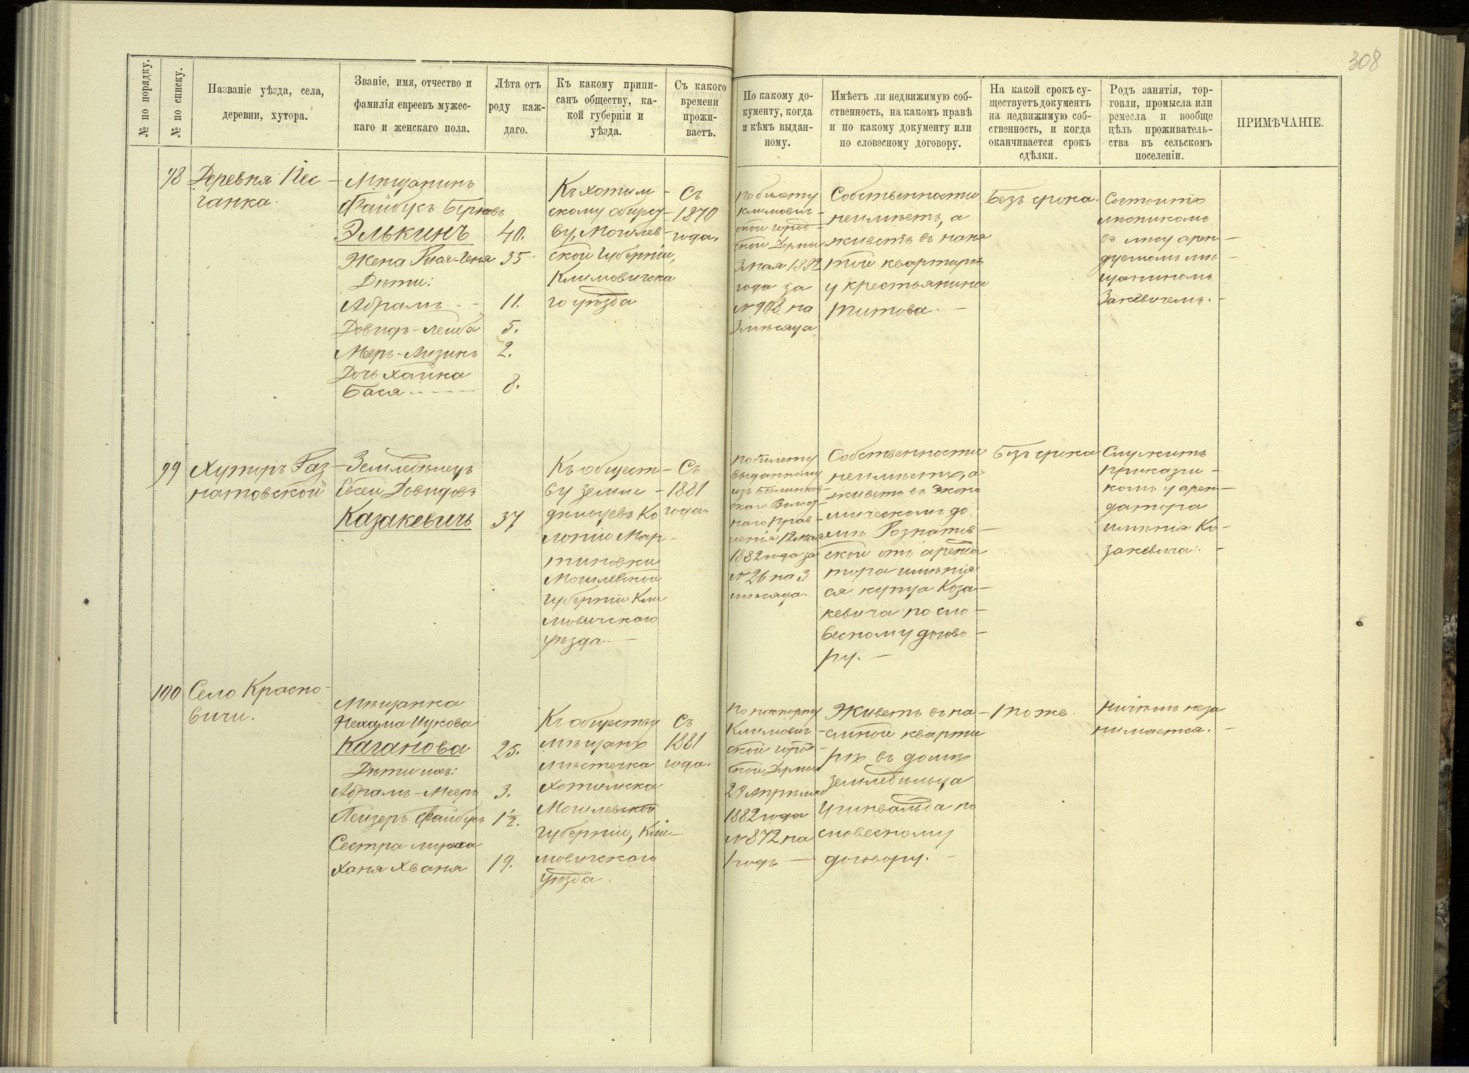 308
№ по порядку.
№ по списку.
Названіе уѣзда, села,
деревни, хутора.
Званіе, имя, отчество и
фамилія евреевъ мужес-
каго и женскаго пола.
Лѣта отъ
роду каж-
даго.
Къ какому припи-
санъ обществу, ка-
кой губерніи и
уѣзда.
Съ какого
времени
прожи-
ваетъ.
По какому до-
кументу, когда
и кѣмъ выдан-
ному.
Имѣетъ ли недвижимую соб-
ственность, на какомъ правѣ
и по какому документу или
по словесному договору.
На какой срокъ су-
ществуетъ документъ
на недвижимую соб-
ственность, и когда
оканчивается срокъ
сдѣлки.
Родъ занятія, тор-
говли, промысла или
ремесла и вообще
цѣль проживатель-
ства въ сельскомъ
поселеніи.
ПРИМѢЧАНІЕ.
98
Деревня Пес-
чанка.
Мѣщанинъ
Файбусъ
Элькинъ
40.
Жена
35
Дѣти:
Абрамъ
11.
Довидъ-Лейба
5.
2.
Дочь Хайка
Бася
8.
Къ хотим-
скому общест-
ву, Могилев-
ской губерніи,
Климовичска
го уѣзда
Съ
1870
года
По билету
Климович-
ской
3 мая 1882
года за
№ 908 на
3 мѣсяца
Собственности
неимѣетъ, а
живетъ въ наня
той квартирѣ
у крестьянина
Титова.
Безъ срока.
Состоитъ
въ лѣсу арен-
дуемомъ мѣ-
щаниномъ
99
Хуторъ Раз
натовской
Земледѣлецъ
Евсей Довидовъ
Казакевичъ
37
Къ общест-
ву земле-
дѣльцевъ Ко
лоніи Мар-
тиновки
Могилевской
губерніи Кли
мовичскаго
уѣзда.
Съ
1881
года
По билету
выданному
1882 года за
№ 26 на 3
мѣсяца.
Собственности
неимѣетъ, а
живетъ въ эконо
мическомъ до-
мѣ Рознатов-
ской отъ аренда
тора имѣнія
ся купца Коза-
кевича по сло-
весному догово-
ру.
Безъ срока
Служитъ
приказчи-
комъ у арен-
датора
имѣнія Ко-
закевича.
100
Село Красно-
вичи.
Мѣщанка
Нехама Ицкова
Каганова
25.
Дѣти ихъ:
Абрамъ-Мееръ
3.
Лейзеръ Файбусъ
1½.
Сестра мужа
Ханя Хваня
19.
Къ обществу
мѣщанъ
мѣстечка
Хотимска
Могилевской
губерніи, Кли-
мовичскаго
уѣзда.
Съ
1881
года.
По паспорту
Климович-
ской
29 Апрѣля
1882 года
№ 872 на
1 годъ
Живетъ въ на-
емной кварти
рѣ въ домѣ
земледѣльца
по
словесному
договору.
Тоже
Ничѣмъ неза
нимается.